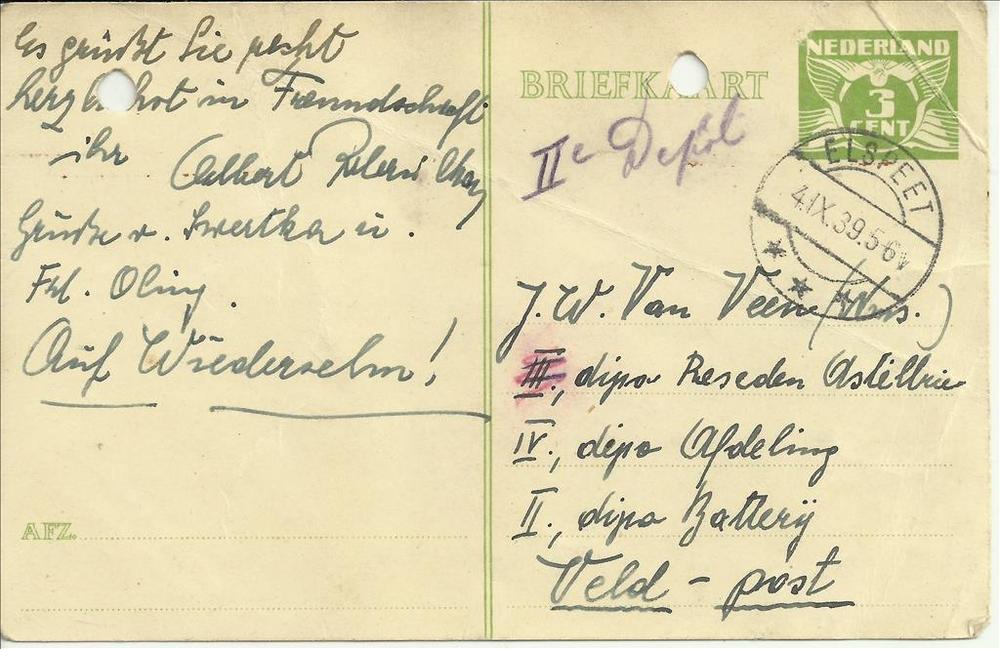 Es grüßt Sie recht
herzlichst in Freundschaft
ihr Albert
Grüße v. Swertka u.
Frl. Oling.
Auf Wiedersehn!
AFZ.
BRIEFKAART
NEDERLAND
3
CENT
ELSPEET
4.IX.39.5-6V
IIe Depot
J. W. Van Veen (Wns.)
III., dipo Reseden Astillrie
IV., depo Afdeling
II., dipo Battery
Veld - post